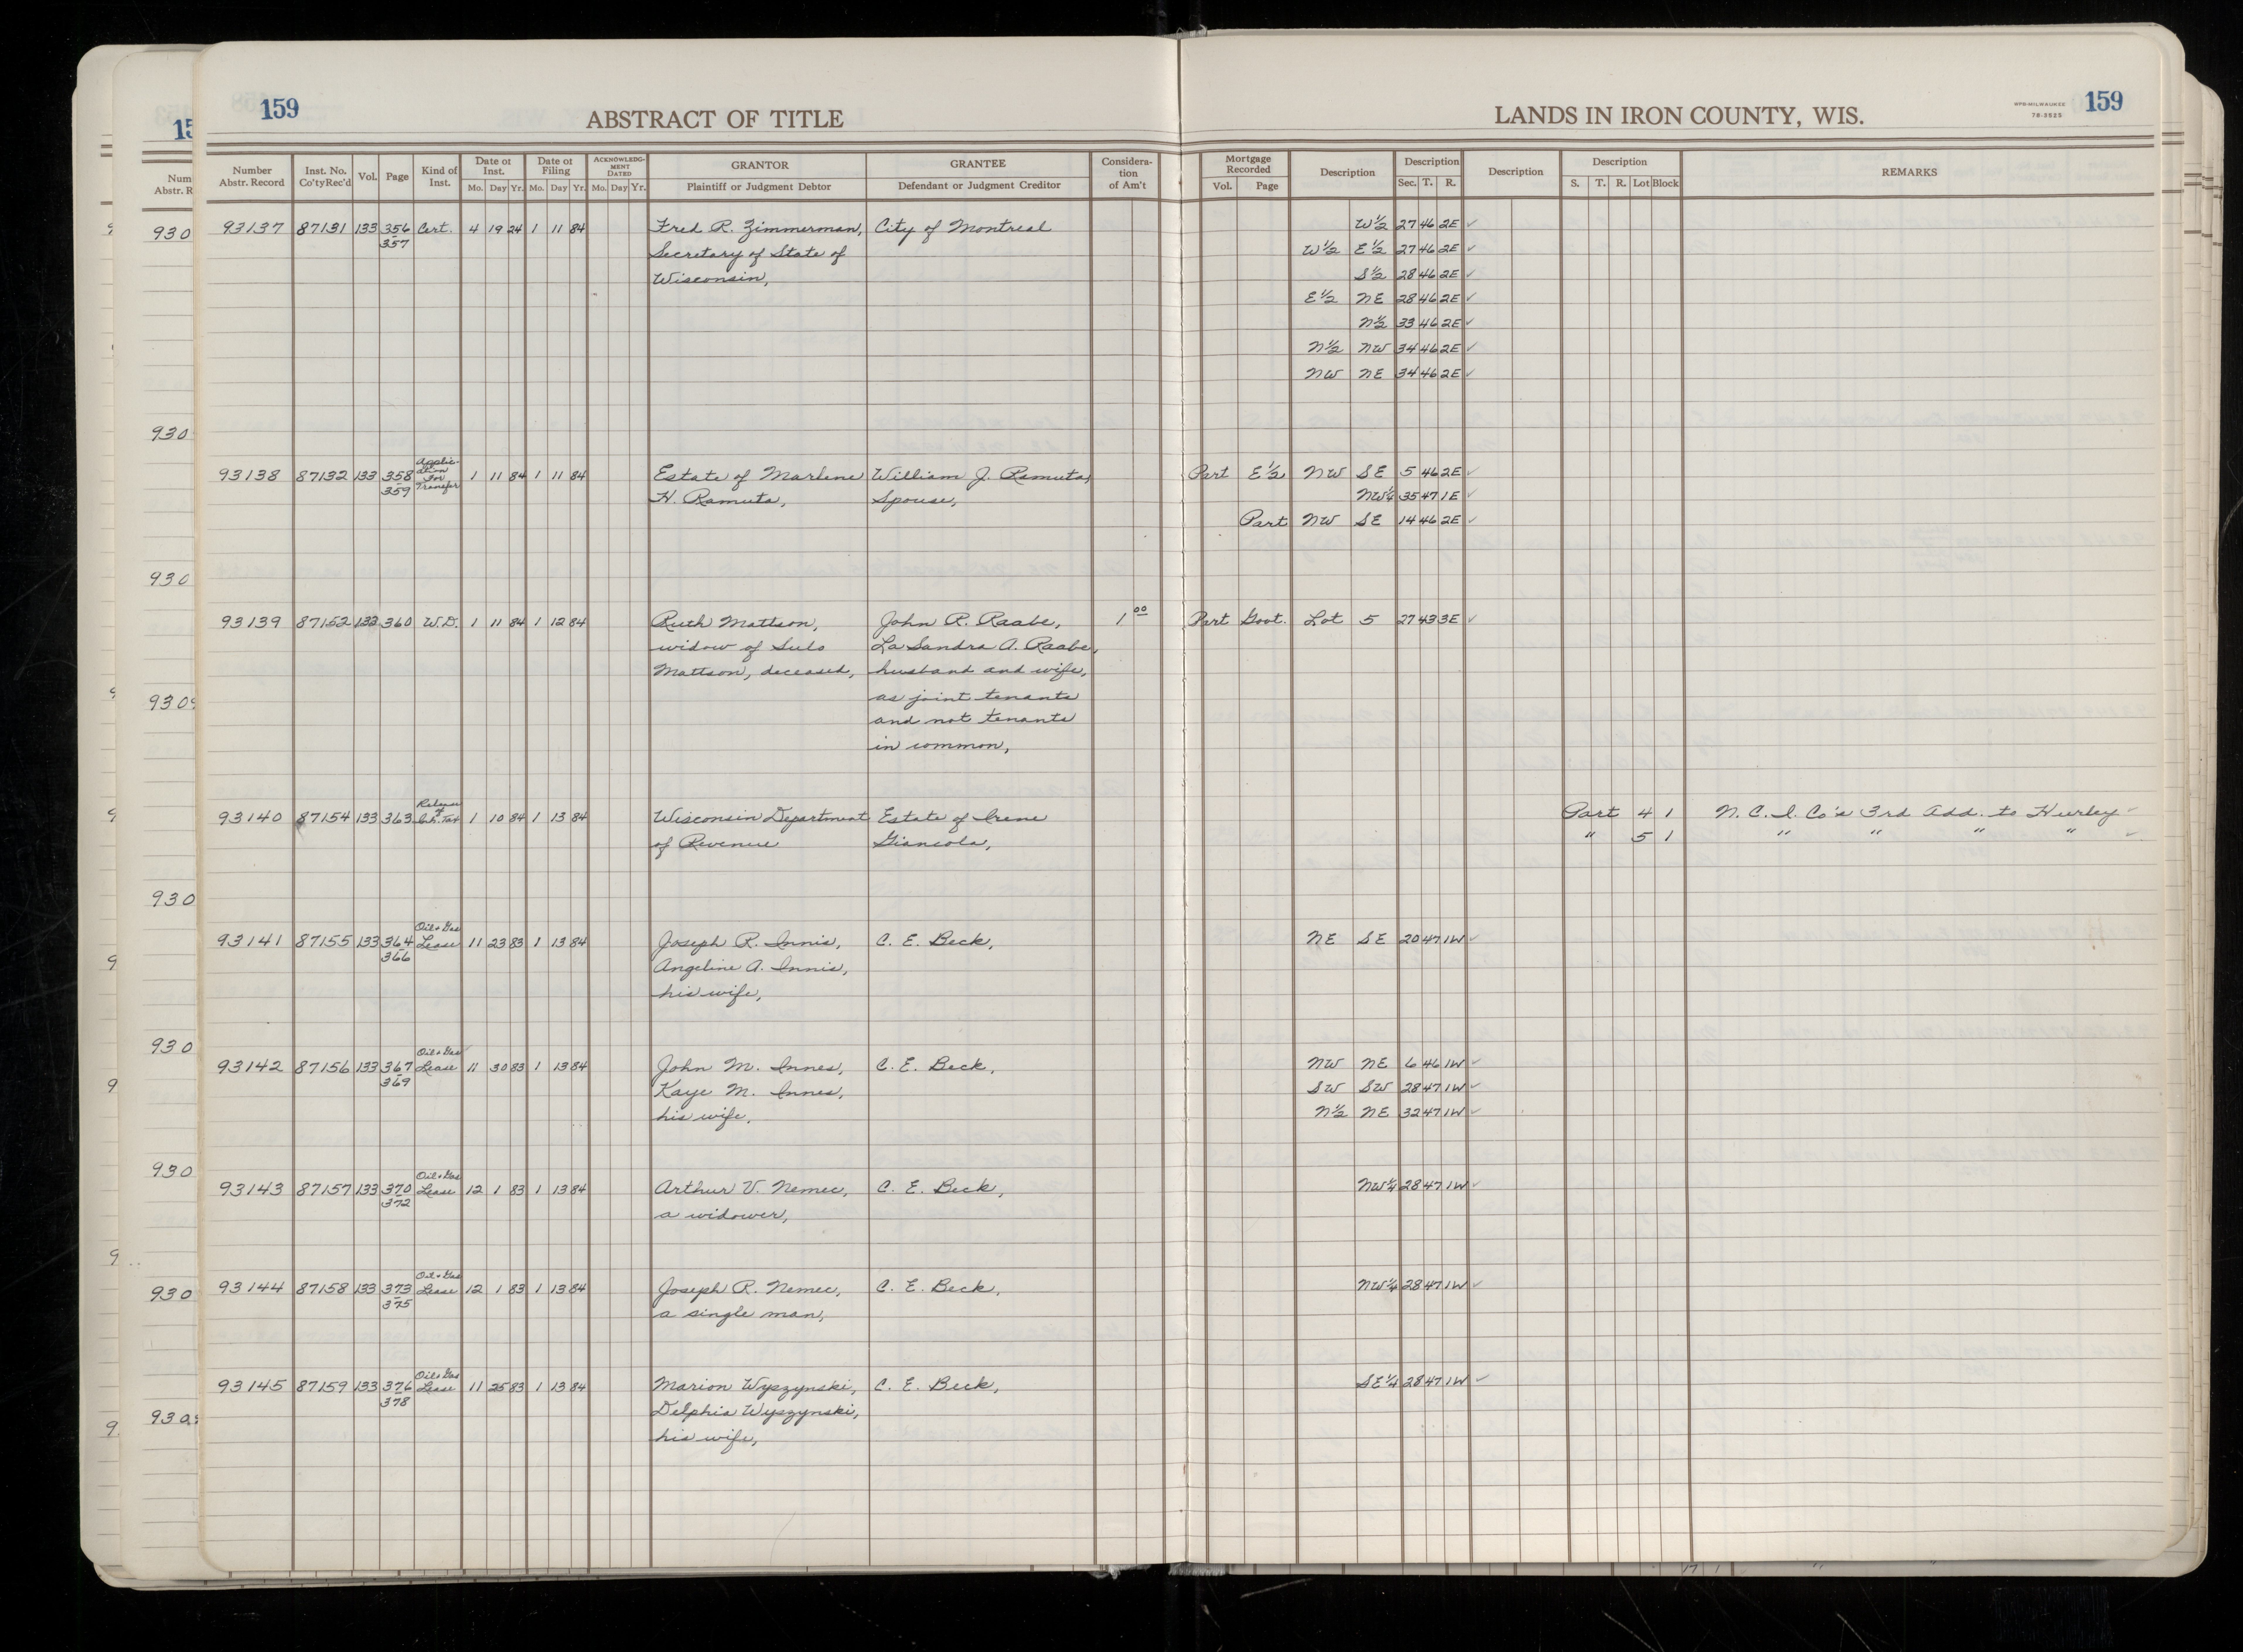 159
ABSTRACT OF TITLE
LANDS IN IRON COUNTY, WIS.
WPB-MILWAUKEE
78-3523
159
Number Abstr. Record | Inst. No. Co'ty Rec'd | Vol. | Page | Kind of Inst. | Date of Inst. Mo. Day Yr. | Date of Filing Mo. Day Yr. | ACKNOWLEDGMENT DATED Mo. Day Yr. | GRANTOR Plaintiff or Judgment Debtor | GRANTEE Defendant or Judgment Creditor | Consideration of Am't | Mortgage Recorded Vol. Page | Description | Description Sec. T. R. | Description | Description S. T. R. Lot Block | REMARKS
93137 87131 133 356 Cert. 4 19 24 1 11 84 Fred R. Zimmerman, City of Montreal W½ 27 46 2E ✓
357 Secretary of State of W½ E½ 27 46 2E ✓
Wisconsin, S½ 28 46 2E ✓
E½ NE 28 46 2E ✓
N½ 33 46 2E ✓
N½ NW 34 46 2E ✓
NW NE 34 46 2E ✓
Application For Transfer
93138 87132 133 358 1 11 84 1 11 84 Estate of Marlene William J. Ramuta, Part E½ NW SE 5 46 2E ✓
359 H. Ramuta, Spouse, NW¼ 35 47 1E ✓
Part NW SE 14 46 2E ✓
93139 87152 133 360 W.D. 1 11 84 1 12 84 Ruth Mattson, John R. Raabe, 1 00 Part Govt. Lot 5 27 43 3E ✓
widow of Sulo LaSandra A. Raabe,
Mattson, deceased, husband and wife,
as joint tenants
and not tenants
in common,
Release of
93140 87154 133 363 Inh. Tax 1 10 84 1 13 84 Wisconsin Department Estate of Irene Part 4 1 N. C. I. Co's 3rd Add. to Hurley ✓
of Revenue Giancola, " 5 1 " " " " ✓
Oil & Gas
93141 87155 133 364 Lease 11 23 83 1 13 84 Joseph R. Innis, C. E. Beck, NE SE 20 47 1W ✓
366 Angeline A. Innis,
his wife,
Oil & Gas
93142 87156 133 367 Lease 11 30 83 1 13 84 John M. Innes, C. E. Beck, NW NE 6 46 1W ✓
369 Kaye M. Innes, SW SW 28 47 1W ✓
his wife, N½ NE 32 47 1W ✓
Oil & Gas
93143 87157 133 370 Lease 12 1 83 1 13 84 Arthur V. Nemec, C. E. Beck, NW¼ 28 47 1W ✓
372 a widower,
Oil & Gas
93144 87158 133 373 Lease 12 1 83 1 13 84 Joseph R. Nemec, C. E. Beck, NW¼ 28 47 1W ✓
375 a single man,
Oil & Gas
93145 87159 133 376 Lease 11 25 83 1 13 84 Marion Wyszynski, C. E. Beck, SE¼ 28 47 1W ✓
378 Delphia Wyszynski,
his wife,